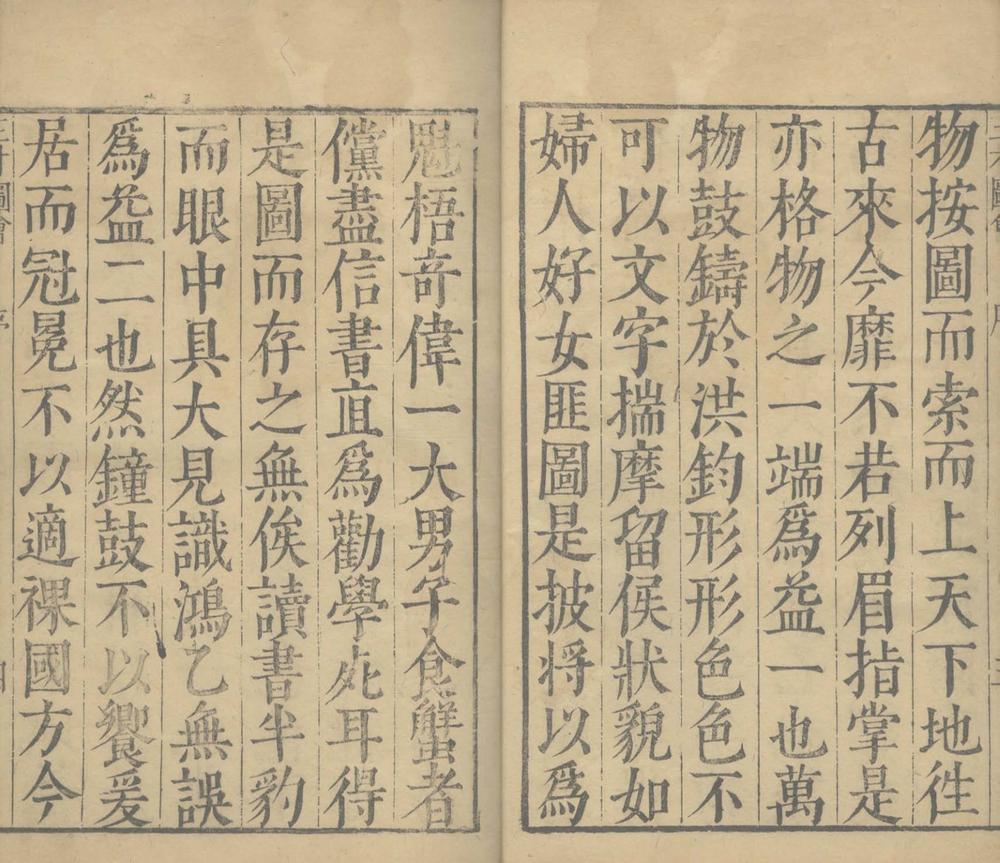 物按圖而索而上天下地徃
古來今靡不若列眉指掌是
亦格物之一端爲益一也萬
物鼓鑄於洪鈞形形色色不
可以文字揣摩留侯狀貌如
婦人好女匪圖是披將以爲
魁梧竒偉一大男子食蟹者
儻盡信書直爲勸學死耳得
是圖而存之無俟讀書半豹
而眼中具大見識鴻乙無誤
爲益二也然鐘鼓不以饗爰
居而冠冕不以適裸國方今